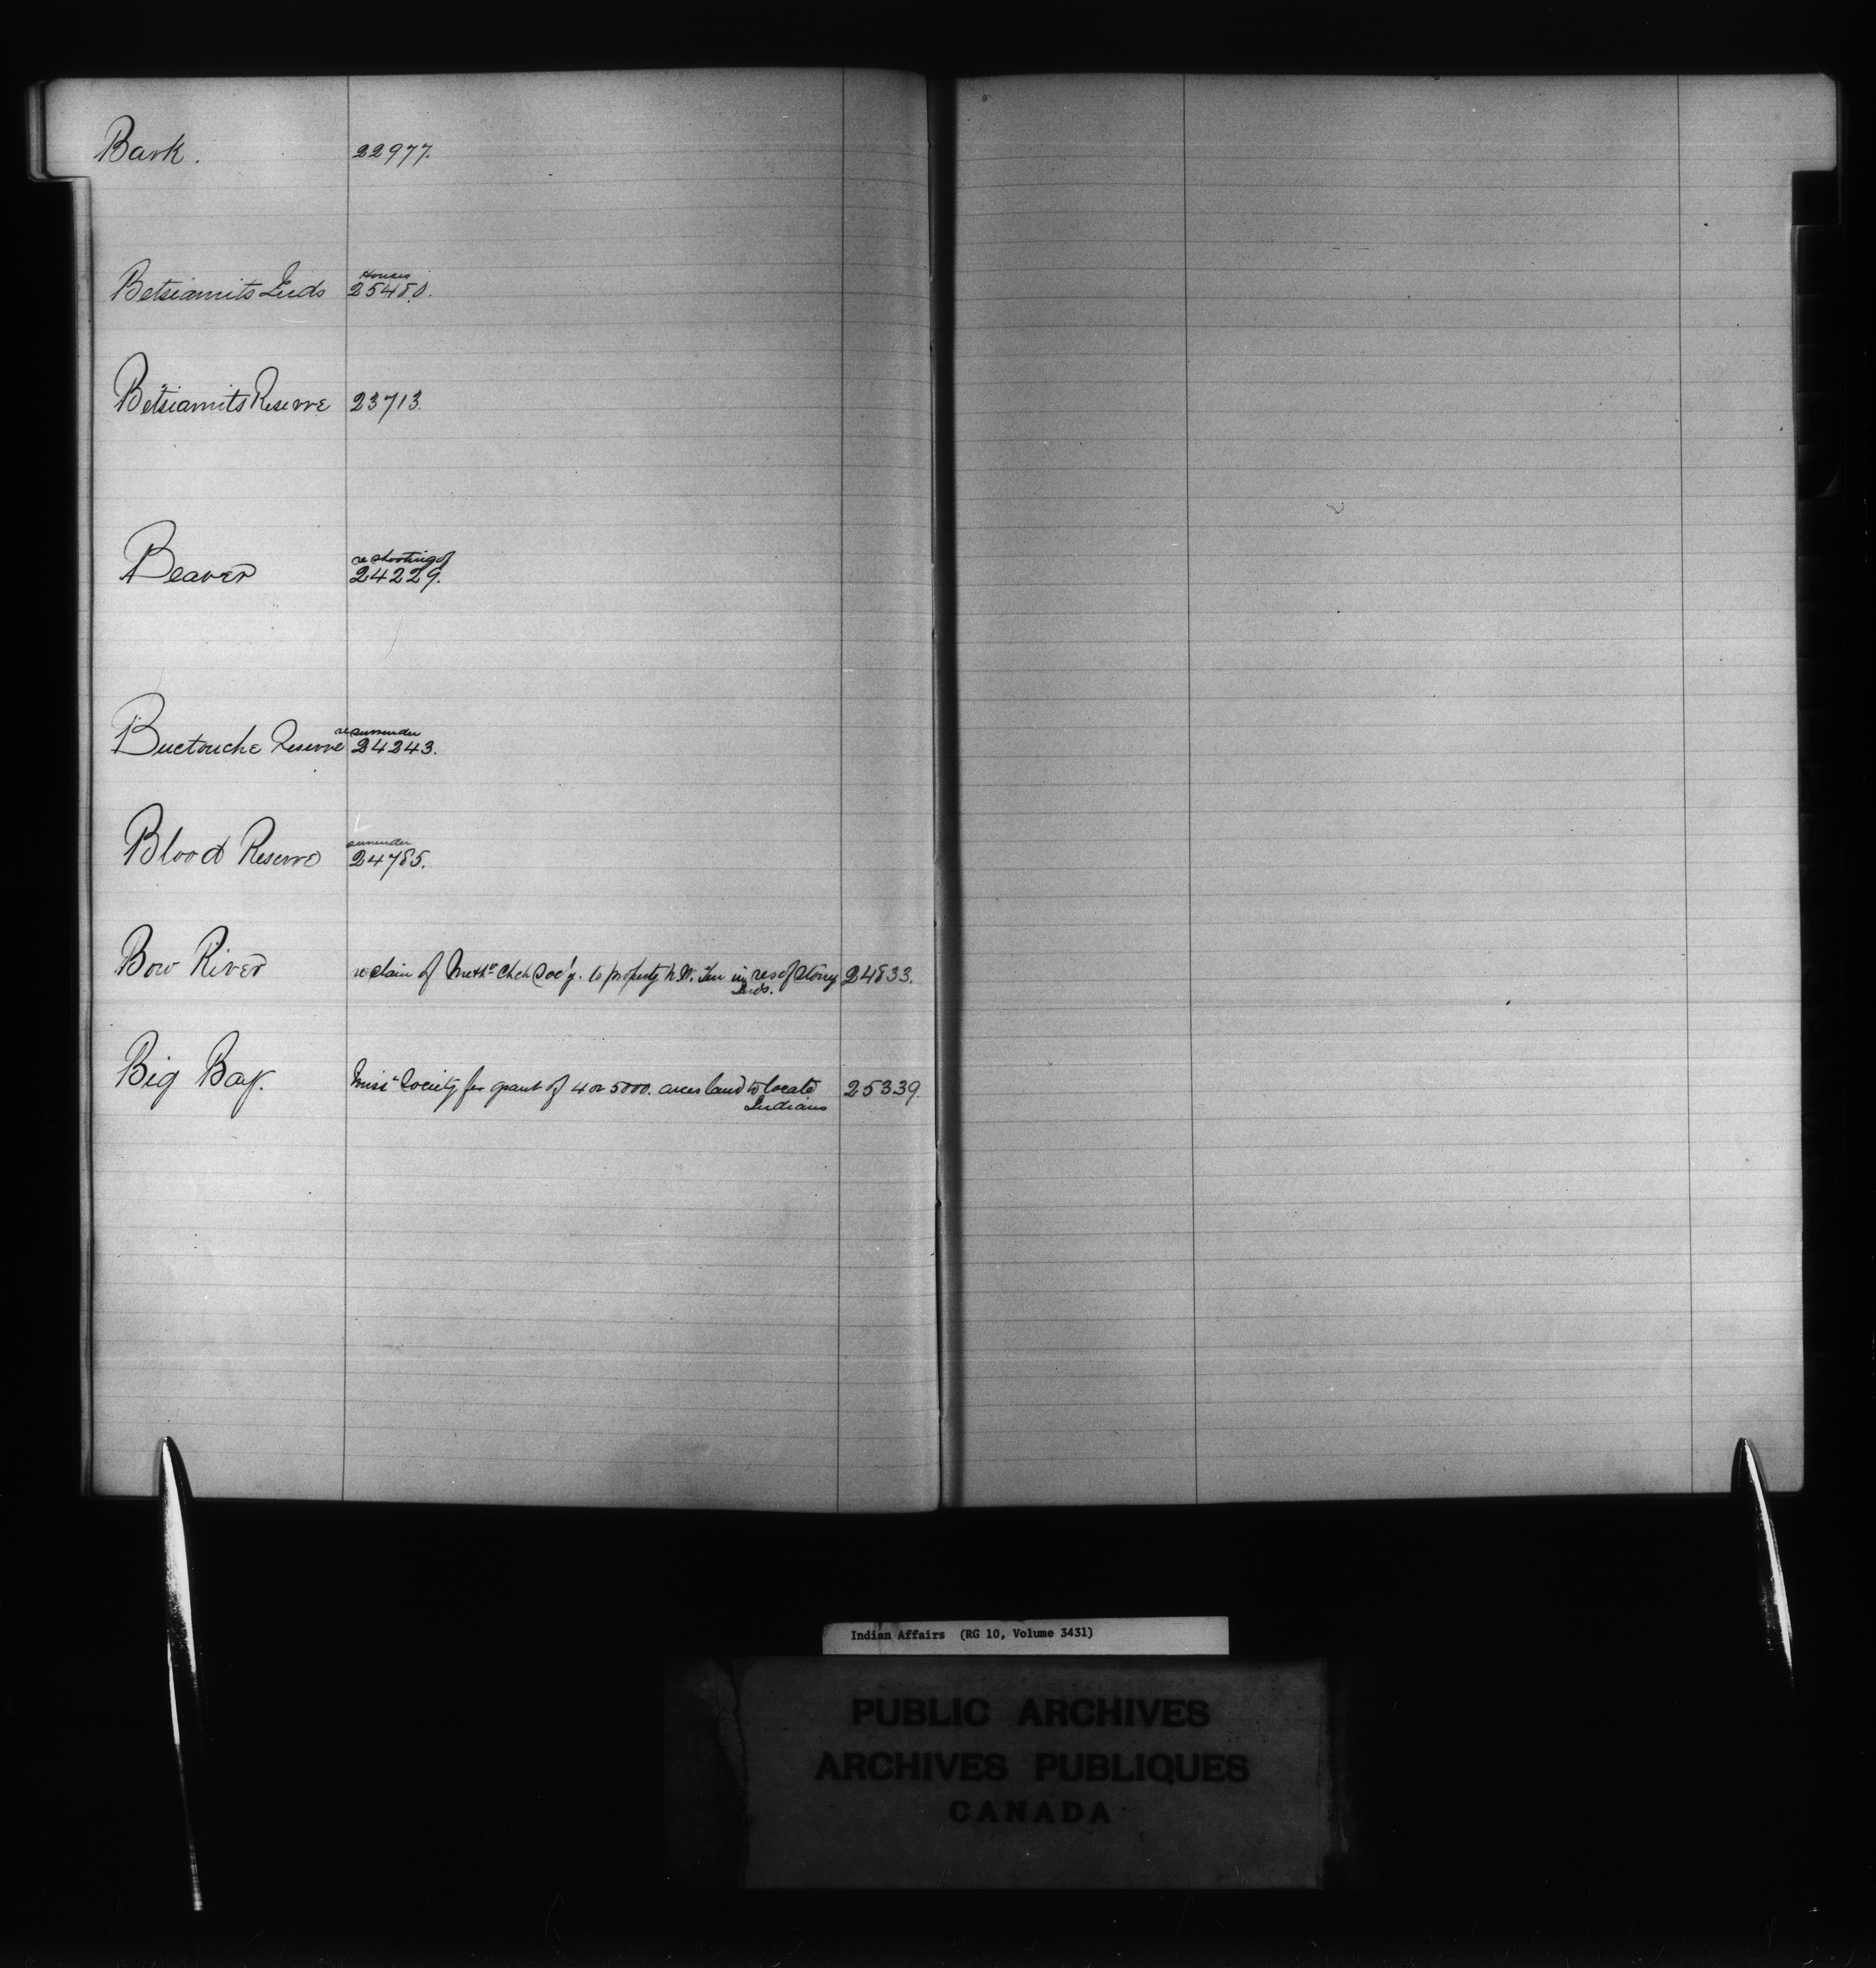 Bark. 22977.
Houses
Betsiamits Inds 25480.
Betsiamits Reserve 23713.
re shooting of
Beaver 24229.
re surrender
Buctouche Reserve 24243.
surrender
Blood Reserve 24785.
Bow River re claim of Meth. Chch Soc'y. to property N.W. Ter in res of Stony 24833.
Inds.
Big Bay. Miss. Society for grant of 4 or 5000. acres land to locate 25339.
Indians
Indian Affairs (RG 10, Volume 3431)
PUBLIC ARCHIVES
ARCHIVES PUBLIQUES
CANADA